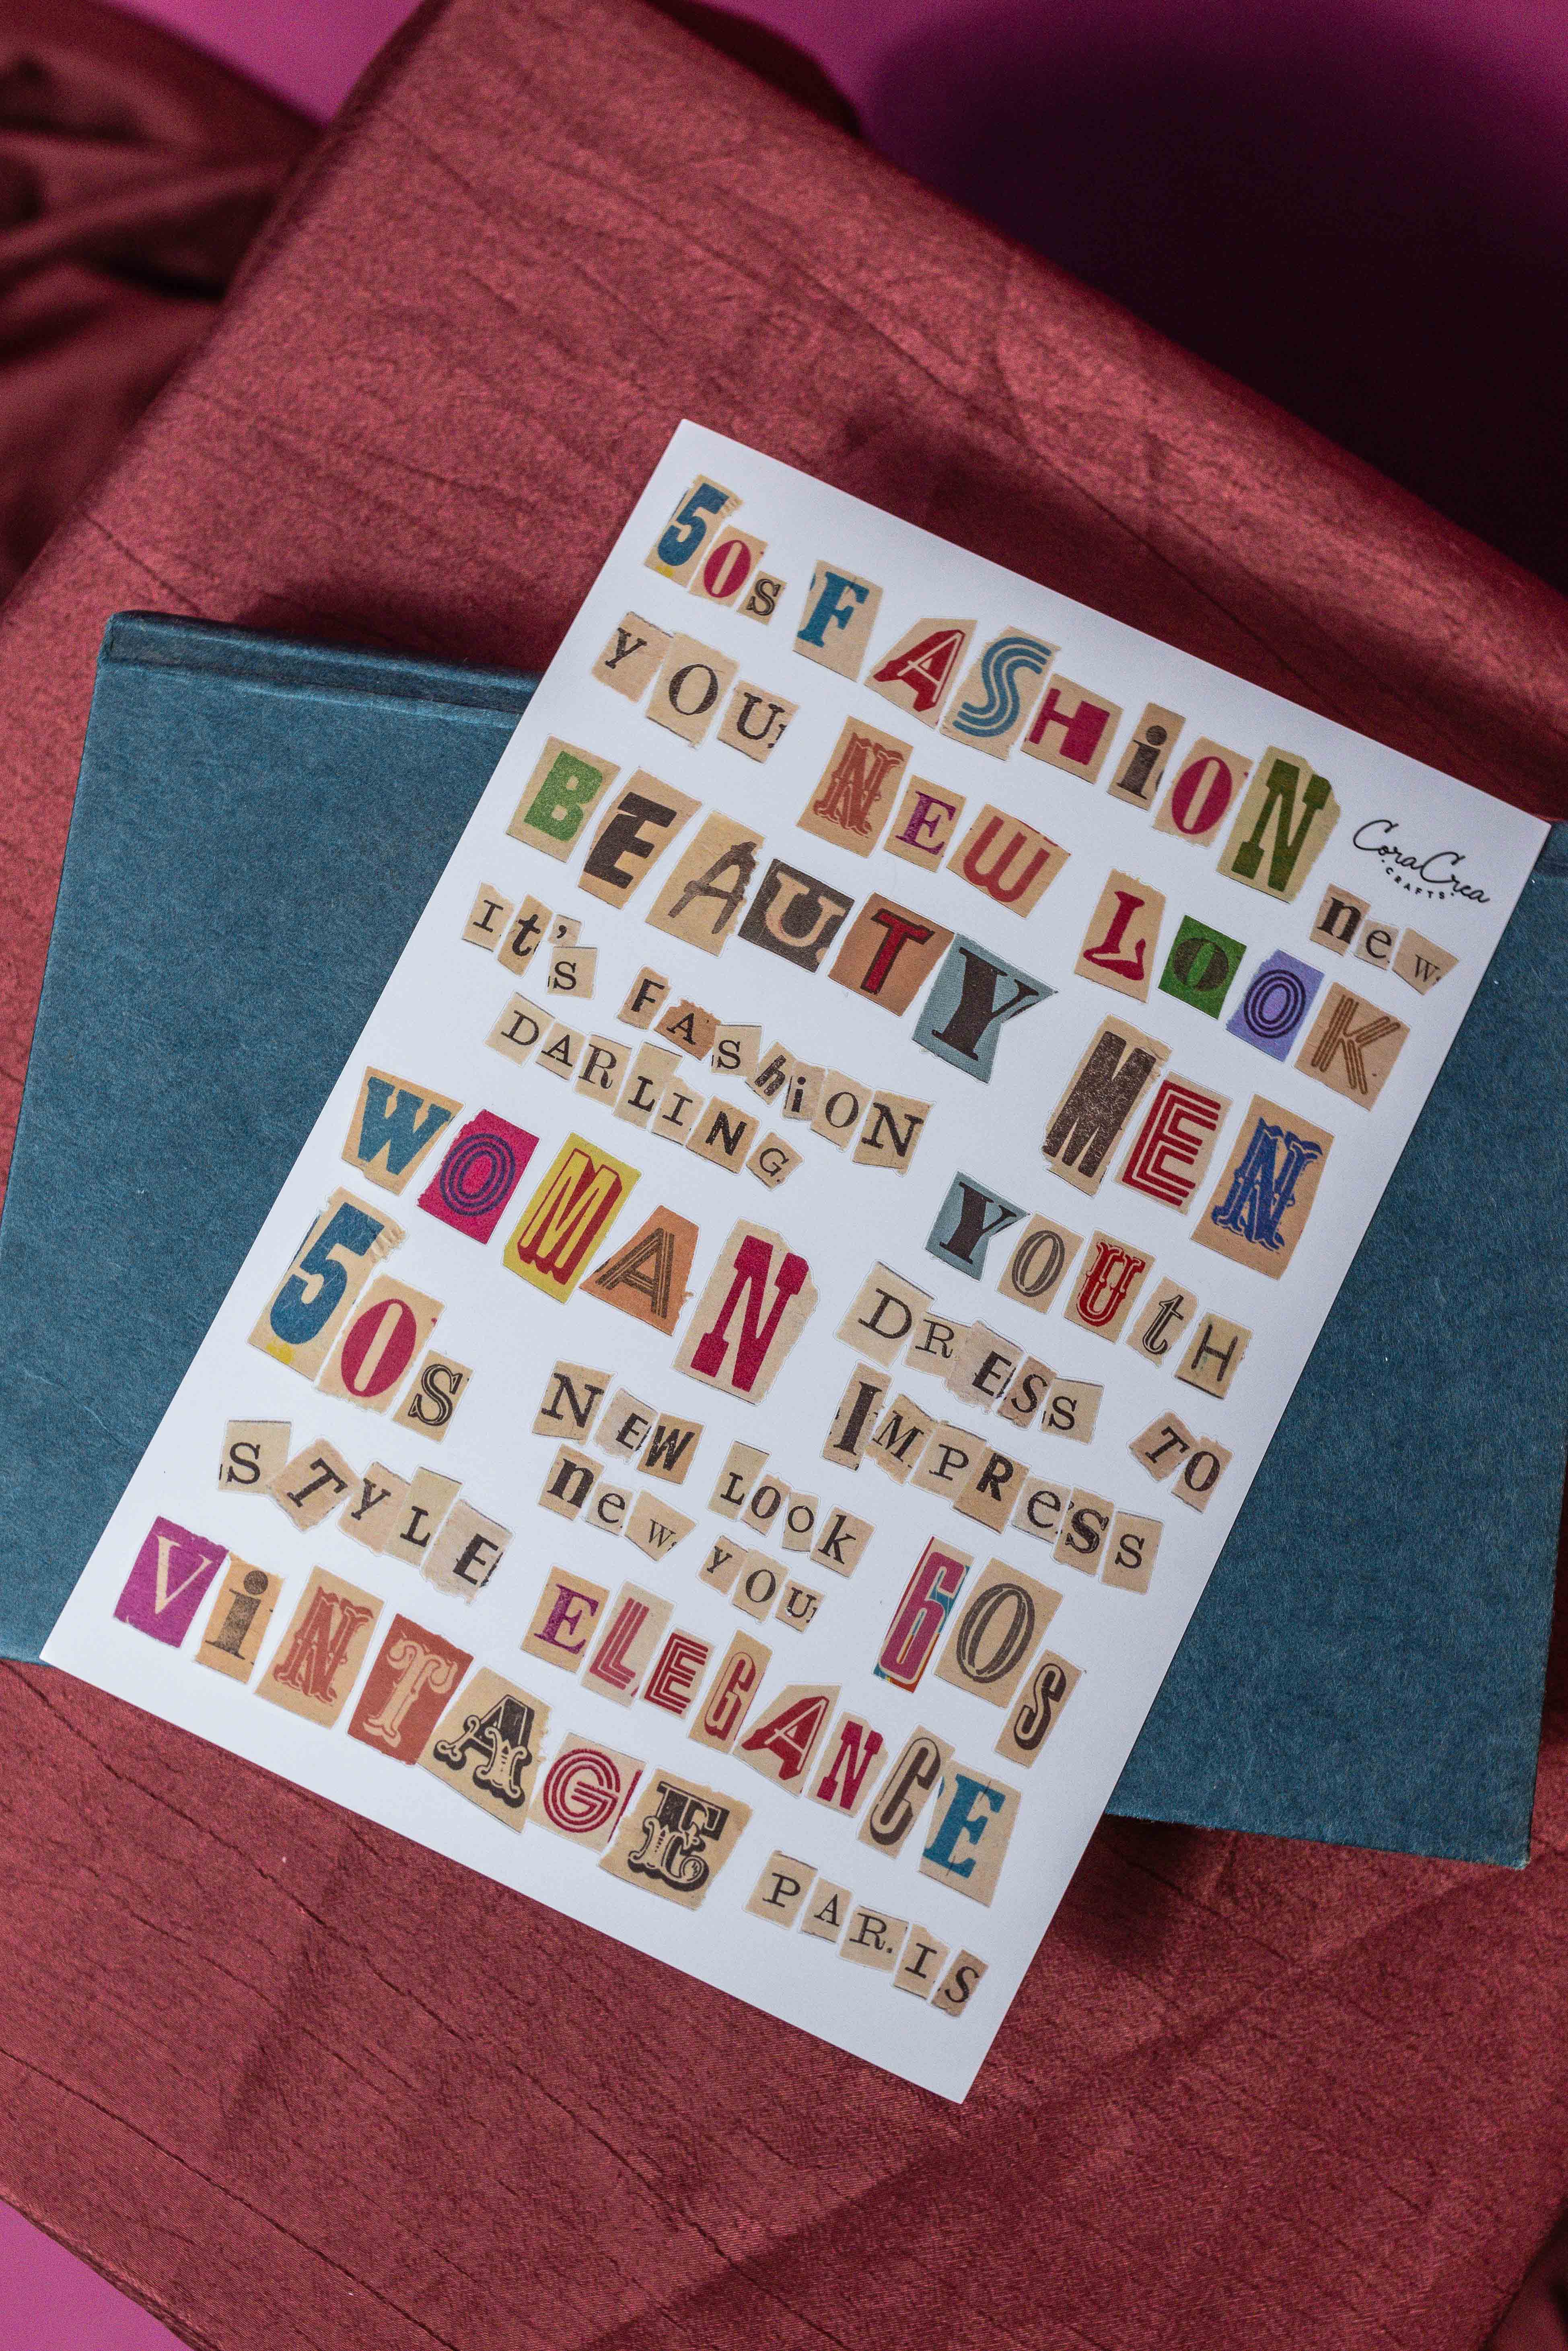 50s FASHiON
CoraCrea
CRAFTS
YOU NEW LOOK new
BEAUTY MEN
It's FAShiON
DARLING
WOMAN YOUtH
50s DRESS TO
NEW LOOk IMPReSS
new YOU
STYLE ELEGANCE 60s
ViNTAGE PARIS